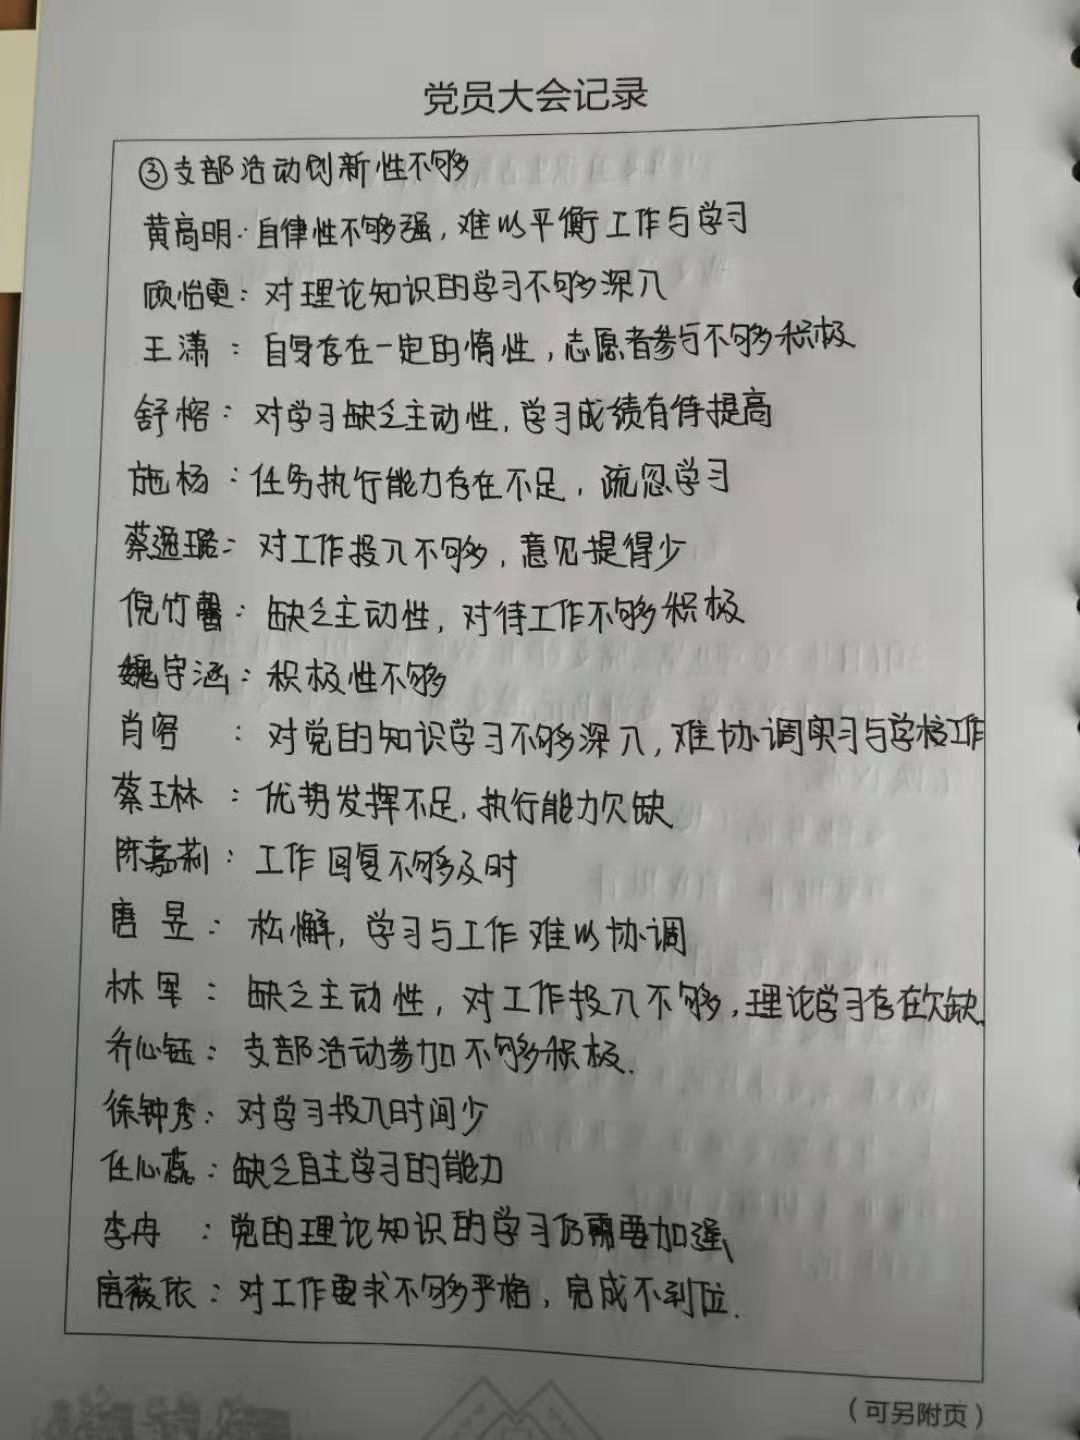 党员大会记录
③支部活动创新性不够
黄高明：自律性不够强，难以平衡工作与学习
顾怡雯：对理论知识的学习不够深入
王潇：自身存在一定的惰性，志愿者参与不够积极
舒榕：对学习缺乏主动性，学习成绩有待提高
施杨：任务执行能力存在不足，疏忽学习
蔡逸璐：对工作投入不够，意见提得少
倪竹馨：缺乏主动性，对待工作不够积极
魏宇涵：积极性不够
肖：对党的知识学习不够深入，难协调实习与学校工作
蔡玉林：优势发挥不足，执行能力欠缺
陈嘉莉：工作回复不够及时
唐昱：松懈，学习与工作难以协调
林军：缺乏主动性，对工作投入不够，理论学习存在欠缺.
乔心钰：支部活动参加不够积极.
徐钟秀：对学习投入时间少
任心蕊：缺乏自主学习的能力
李冉：党的理论知识的学习仍需要加强
唐薇依：对工作要求不够严格，完成不到位.
（可另附页）